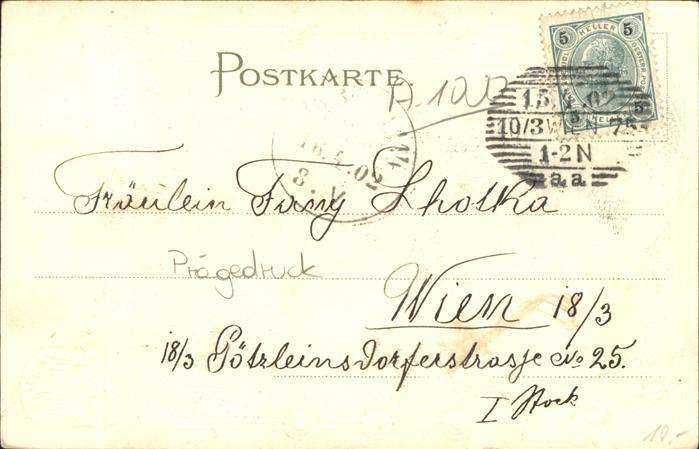 POSTKARTE
5 HELLER 5
5 HELLER 5
15. .02
10/3 WIEN 75
1-2N
a.a
16. .02
8.V
Fräulein Fany Lhotka
Prägedruck
Wien 18/3
18/3 Pötzleinsdorferstrasse No 25.
I Stock
10.-